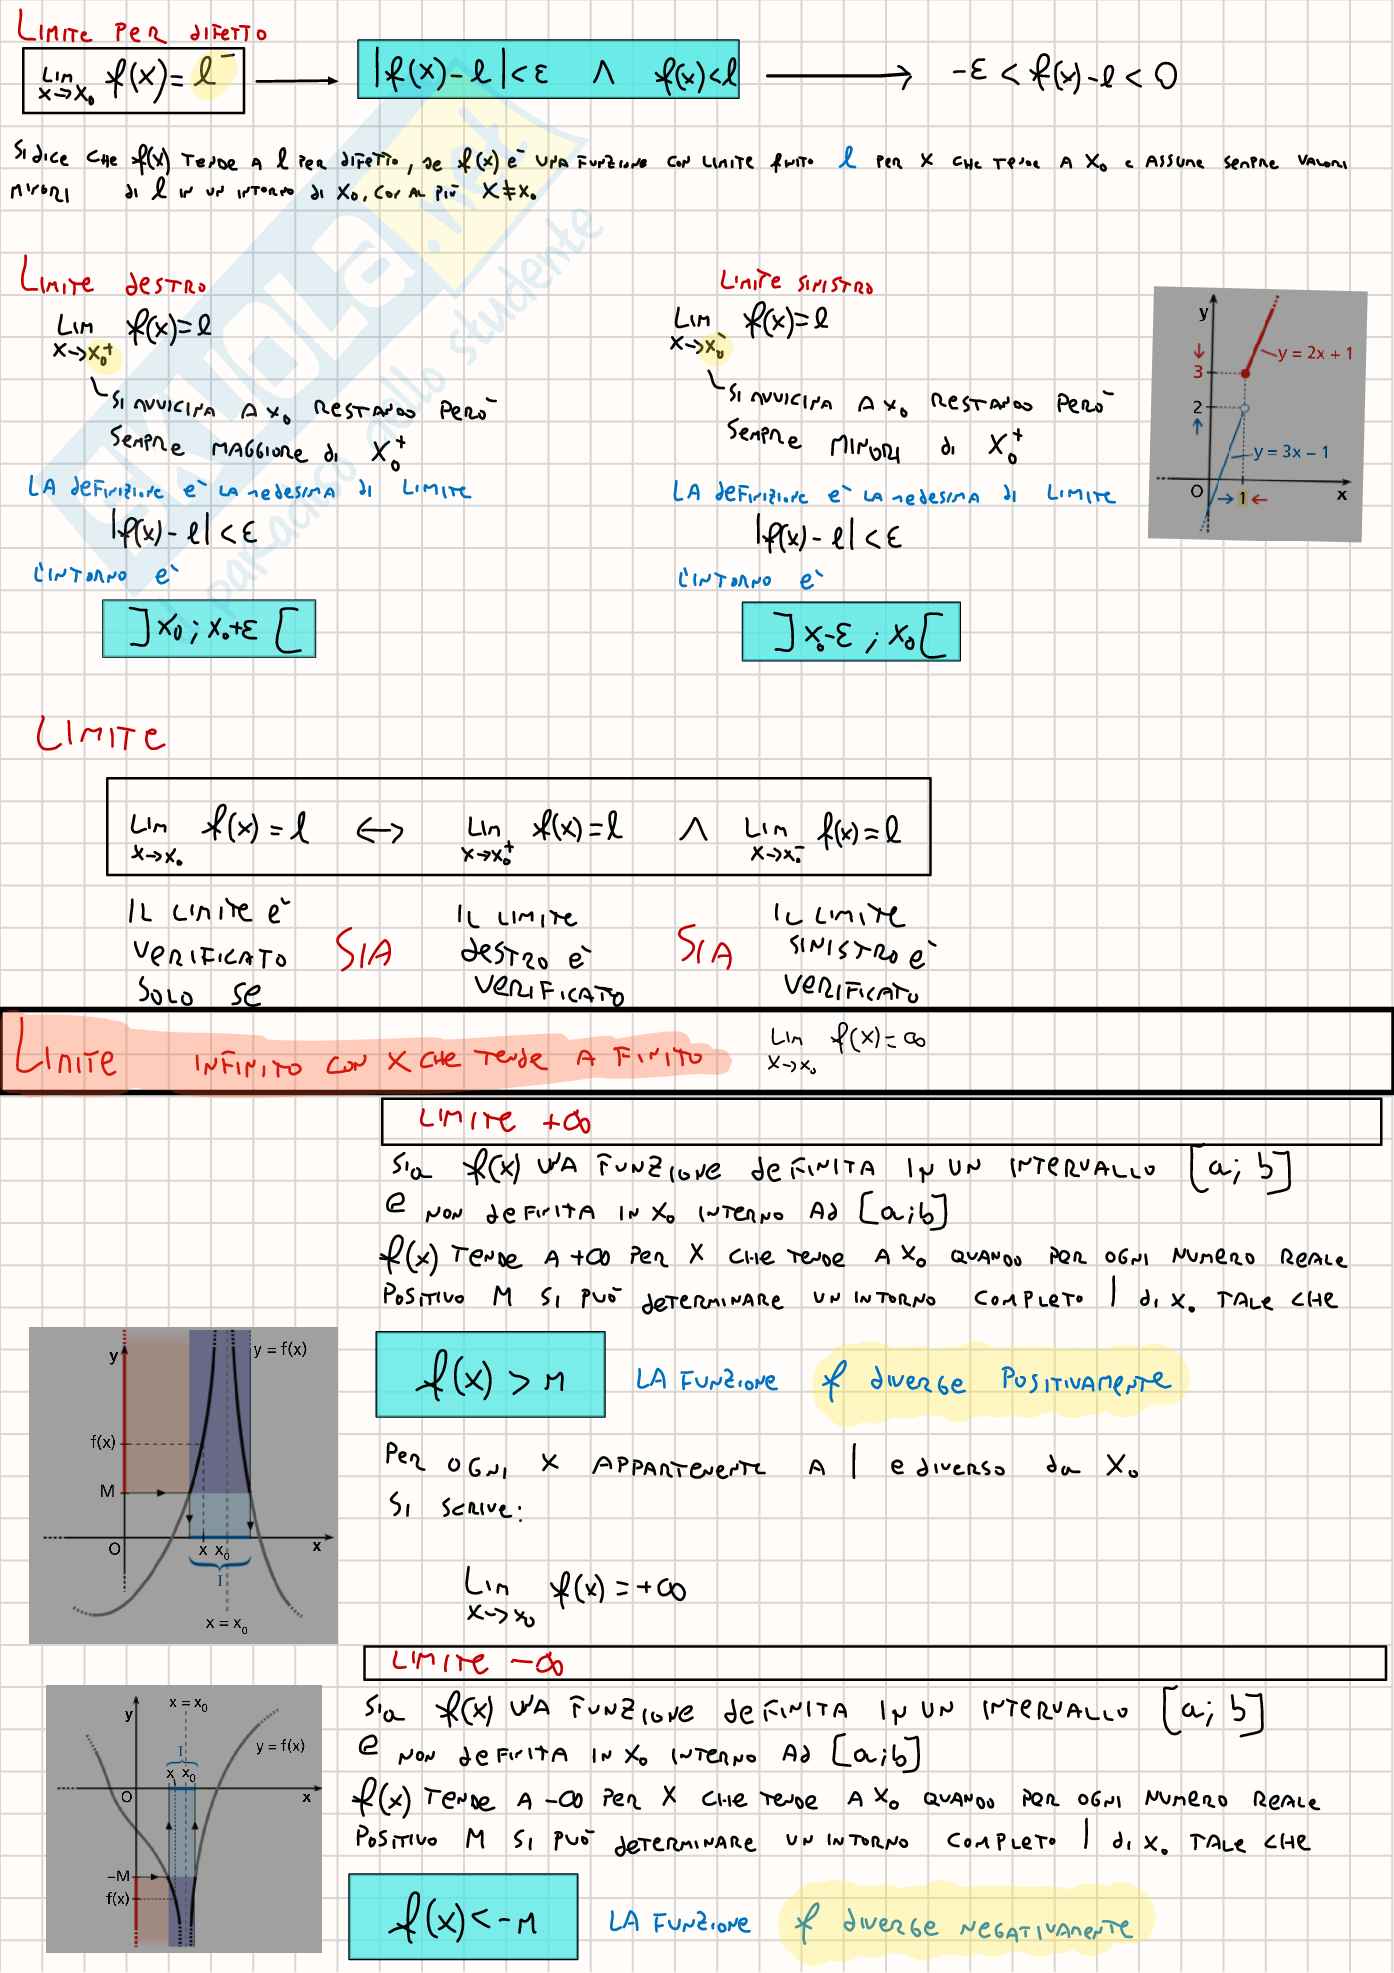 LIMITE PER DIFETTO
LIM x→x₀ f(x) = l⁻ → |f(x) - l| < ε ∧ f(x) < l → -ε < f(x) - l < 0
SI DICE CHE f(x) TENDE A l PER DIFETTO, SE f(x) È UNA FUNZIONE CON LIMITE FINITO l PER X CHE TENDE A X₀ E ASSUME SEMPRE VALORI
MINORI DI l IN UN INTORNO DI X₀, CON AL PIÙ X≠X₀
SKUOLA.net
paradiso dello studente
LIMITE DESTRO
LIM x→x₀⁺ f(x) = l
SI AVVICINA A X₀ RESTANDO PERÒ
SEMPRE MAGGIORE DI X₀⁺
LA DEFINIZIONE È LA MEDESIMA DI LIMITE
|f(x) - l| < ε
L'INTORNO È
]X₀ ; X₀+ε[
LIMITE SINISTRO
LIM x→x₀⁻ f(x) = l
SI AVVICINA A X₀ RESTANDO PERÒ
SEMPRE MINORI DI X₀⁺
LA DEFINIZIONE È LA MEDESIMA DI LIMITE
|f(x) - l| < ε
L'INTORNO È
]X₀-ε ; X₀[
y
y = 2x + 1
3
2
y = 3x – 1
O
1
x
LIMITE
LIM x→x₀ f(x) = l ↔ LIM x→x₀⁺ f(x) = l ∧ LIM x→x₀⁻ f(x) = l
IL LIMITE È
VERIFICATO
SOLO SE
SIA
IL LIMITE
DESTRO È
VERIFICATO
SIA
IL LIMITE
SINISTRO È
VERIFICATO
LIMITE INFINITO CON X CHE TENDE A FINITO LIM x→x₀ f(x) = ∞
LIMITE +∞
SIA f(x) UNA FUNZIONE DEFINITA IN UN INTERVALLO [a; b]
E NON DEFINITA IN X₀ INTERNO AD [a;b]
f(x) TENDE A +∞ PER X CHE TENDE A X₀ QUANDO PER OGNI NUMERO REALE
POSITIVO M SI PUÒ DETERMINARE UN INTORNO COMPLETO I DI X₀ TALE CHE
f(x) > M LA FUNZIONE f DIVERGE POSITIVAMENTE
PER OGNI X APPARTENENTE A I E DIVERSO DA X₀
SI SCRIVE:
LIM x→x₀ f(x) = +∞
y
y = f(x)
f(x)
M
O
x x₀
x
I
x = x₀
LIMITE -∞
SIA f(x) UNA FUNZIONE DEFINITA IN UN INTERVALLO [a; b]
E NON DEFINITA IN X₀ INTERNO AD [a;b]
f(x) TENDE A -∞ PER X CHE TENDE A X₀ QUANDO PER OGNI NUMERO REALE
POSITIVO M SI PUÒ DETERMINARE UN INTORNO COMPLETO I DI X₀ TALE CHE
f(x) < -M LA FUNZIONE f DIVERGE NEGATIVAMENTE
x = x₀
y
y = f(x)
I
x x₀
O
x
–M
f(x)